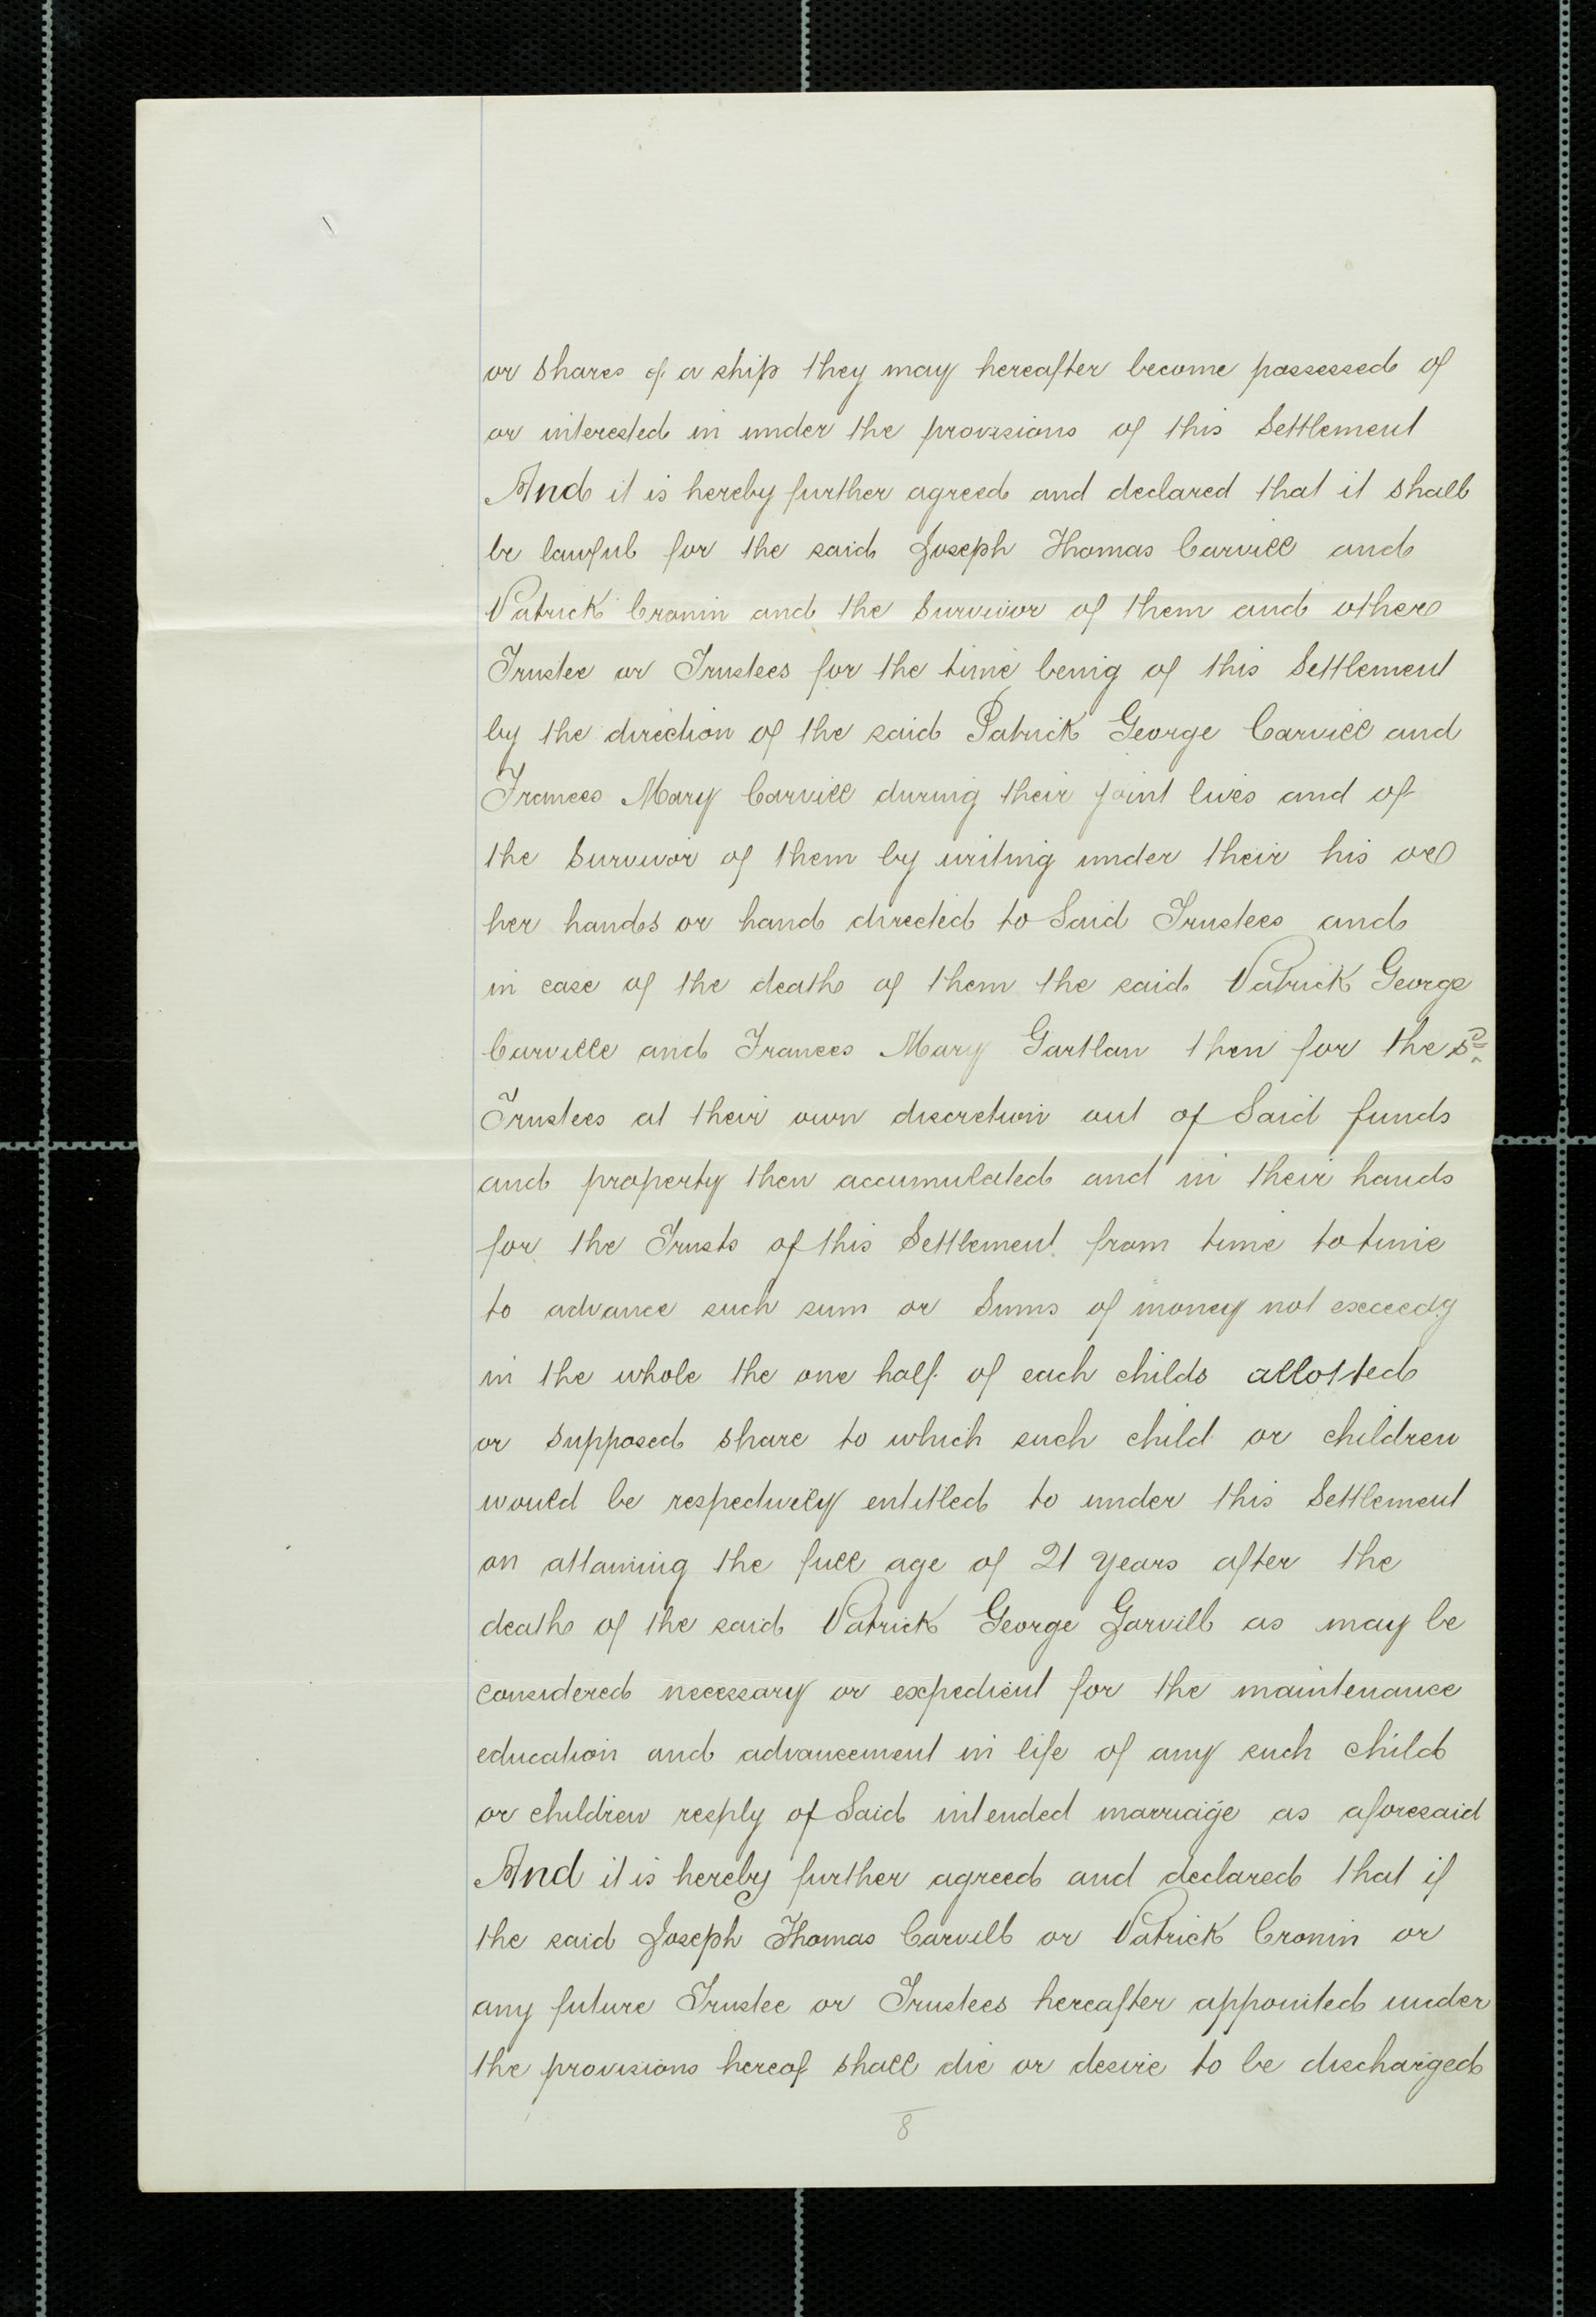 or shares of a ship they may hereafter become possessed of
or interested in under the provisions of this Settlement
And it is hereby further agreed and declared that it shall
be lawful for the said Joseph Thomas Carvill and
Patrick Cronin and the Survivor of them and other
Trustee or Trustees for the time being of this Settlement
by the direction of the said Patrick George Carvill and
Frances Mary Carvill during their joint lives and of
the Survivor of them by writing under their his or
her hands or hand directed to Said Trustees and
in case of the death of them the said Patrick George
Carville and Frances Mary Gartlan then for the sd
Trustees at their own discretion out of Said funds
and property then accumulated and in their hands
for the Trusts of this Settlement from time to time
to advance such sum or Sums of money not exceedg
in the whole the one half of each childs allotted
or supposed share to which such child or children
would be respectively entitled to under this Settlement
on attaining the full age of 21 years after the
death of the said Patrick George Garvill as may be
considered necessary or expedient for the maintenance
education and advancement in life of any such child
or children resply of Said intended marriage as aforesaid
And it is hereby further agreed and declared that if
the said Joseph Thomas Carvill or Patrick Cronin or
any future Trustee or Trustees hereafter appointed under
the provisions hereof shall die or desire to be discharged
8